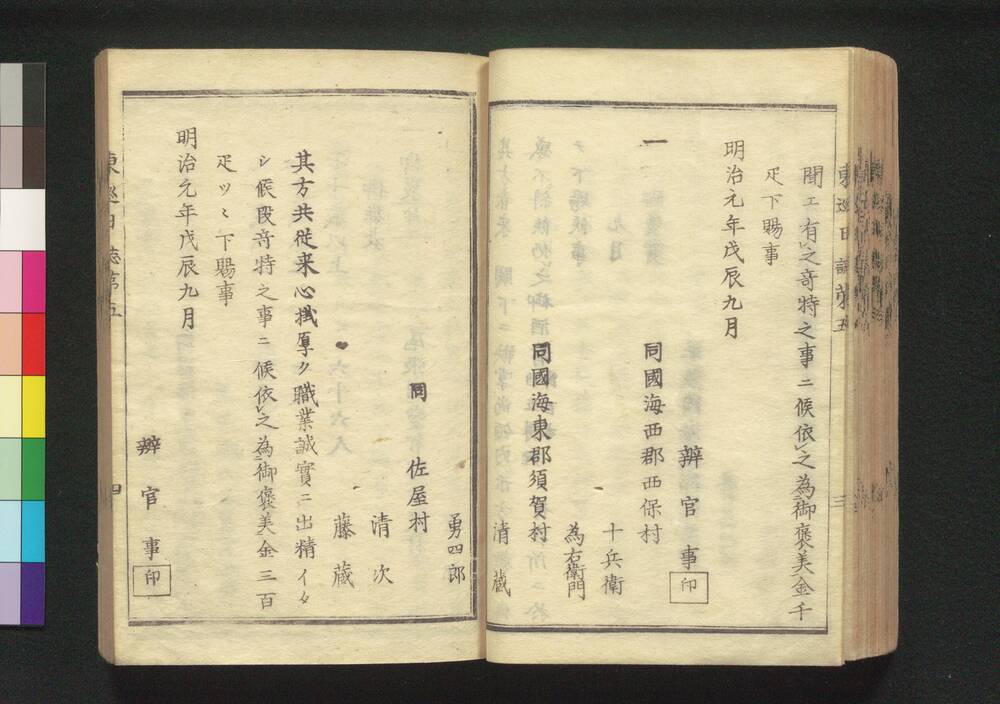 聞エ有之竒特之事ニ候依之為御褒美金千
疋下賜事
明治元年戊辰九月
辨官事印
一
同國海西郡西保村
十兵衛
為右衛門
同國海東郡須賀村
清蔵
勇四郎
同佐屋村
清次
藤蔵
其方共従来心掛厚ク職業誠實ニ出精イタ
シ候段竒特之事ニ候依之為御褒美金三百
疋ツヽ下賜事
明治元年戊辰九月
辨官事印
東巡日誌第五
四